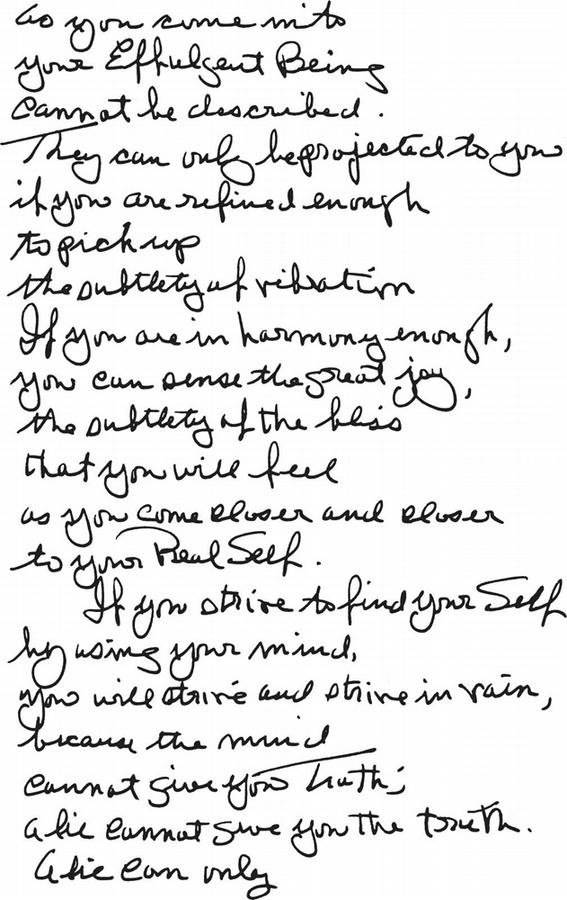 as you come into
your Effulgent Being
cannot be described.
They can only be projected to you
if you are refined enough
to pick up
the subtlety of vibration
If you are in harmony enough,
you can sense the great joy,
the subtlety of the bliss
that you will feel
as you come closer and closer
to your Real Self.
If you strive to find your Self
by using your mind,
you will strive and strive in vain,
because the mind
cannot give you Truth;
a lie cannot give you the truth.
A lie can only